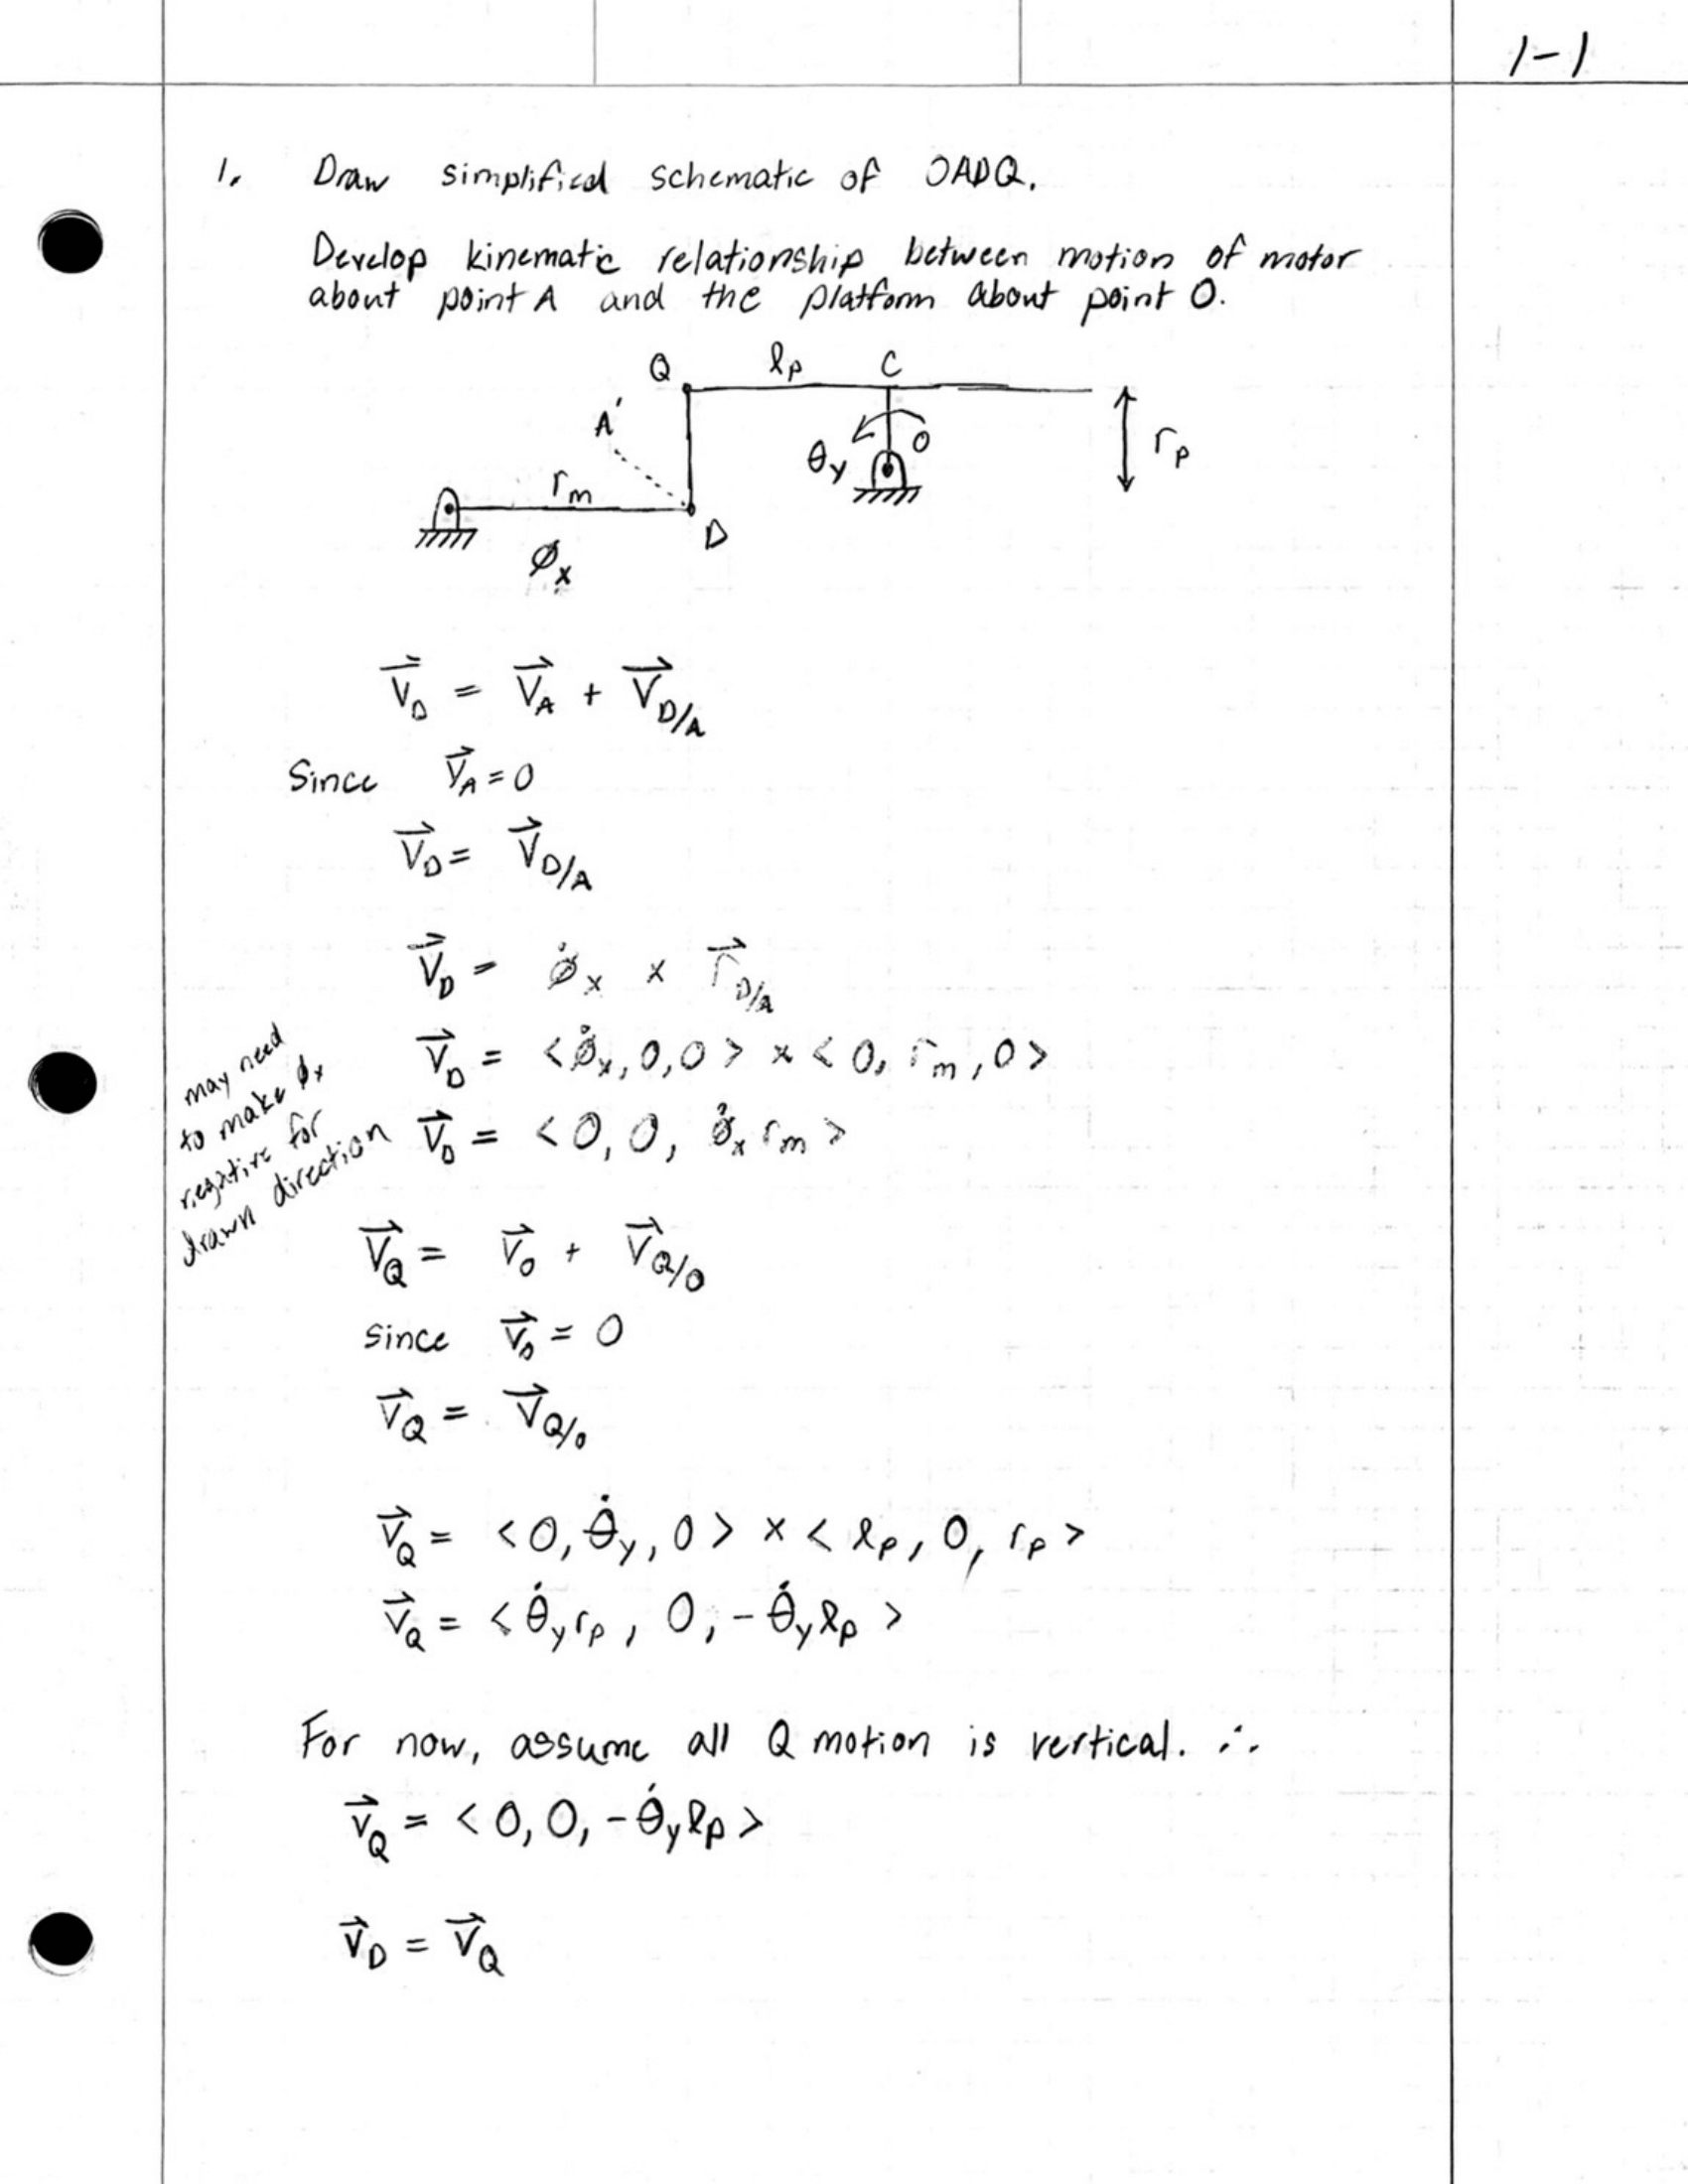 1-1
1. Draw simplified schematic of OADQ.
Develop kinematic relationship between motion of motor
about point A and the platform about point O.
Q ℓp C
A'
θy O rp
rm
D
øx
V⃗D = V⃗A + V⃗D/A
Since V⃗A = 0
V⃗D = V⃗D/A
V⃗D = ø̇x × r⃗D/A
V⃗D = <ø̇x, 0, 0> × <0, rm, 0>
V⃗D = <0, 0, ø̇x rm>
may need
to make ϕx
negative for
drawn direction
V⃗Q = V⃗O + V⃗Q/O
since V⃗O = 0
V⃗Q = V⃗Q/O
V⃗Q = <0, θ̇y, 0> × <ℓp, 0, rp>
V⃗Q = <θ̇y rp, 0, -θ̇y ℓp>
For now, assume all Q motion is vertical. ∴
V⃗Q = <0, 0, -θ̇y ℓp>
V⃗D = V⃗Q